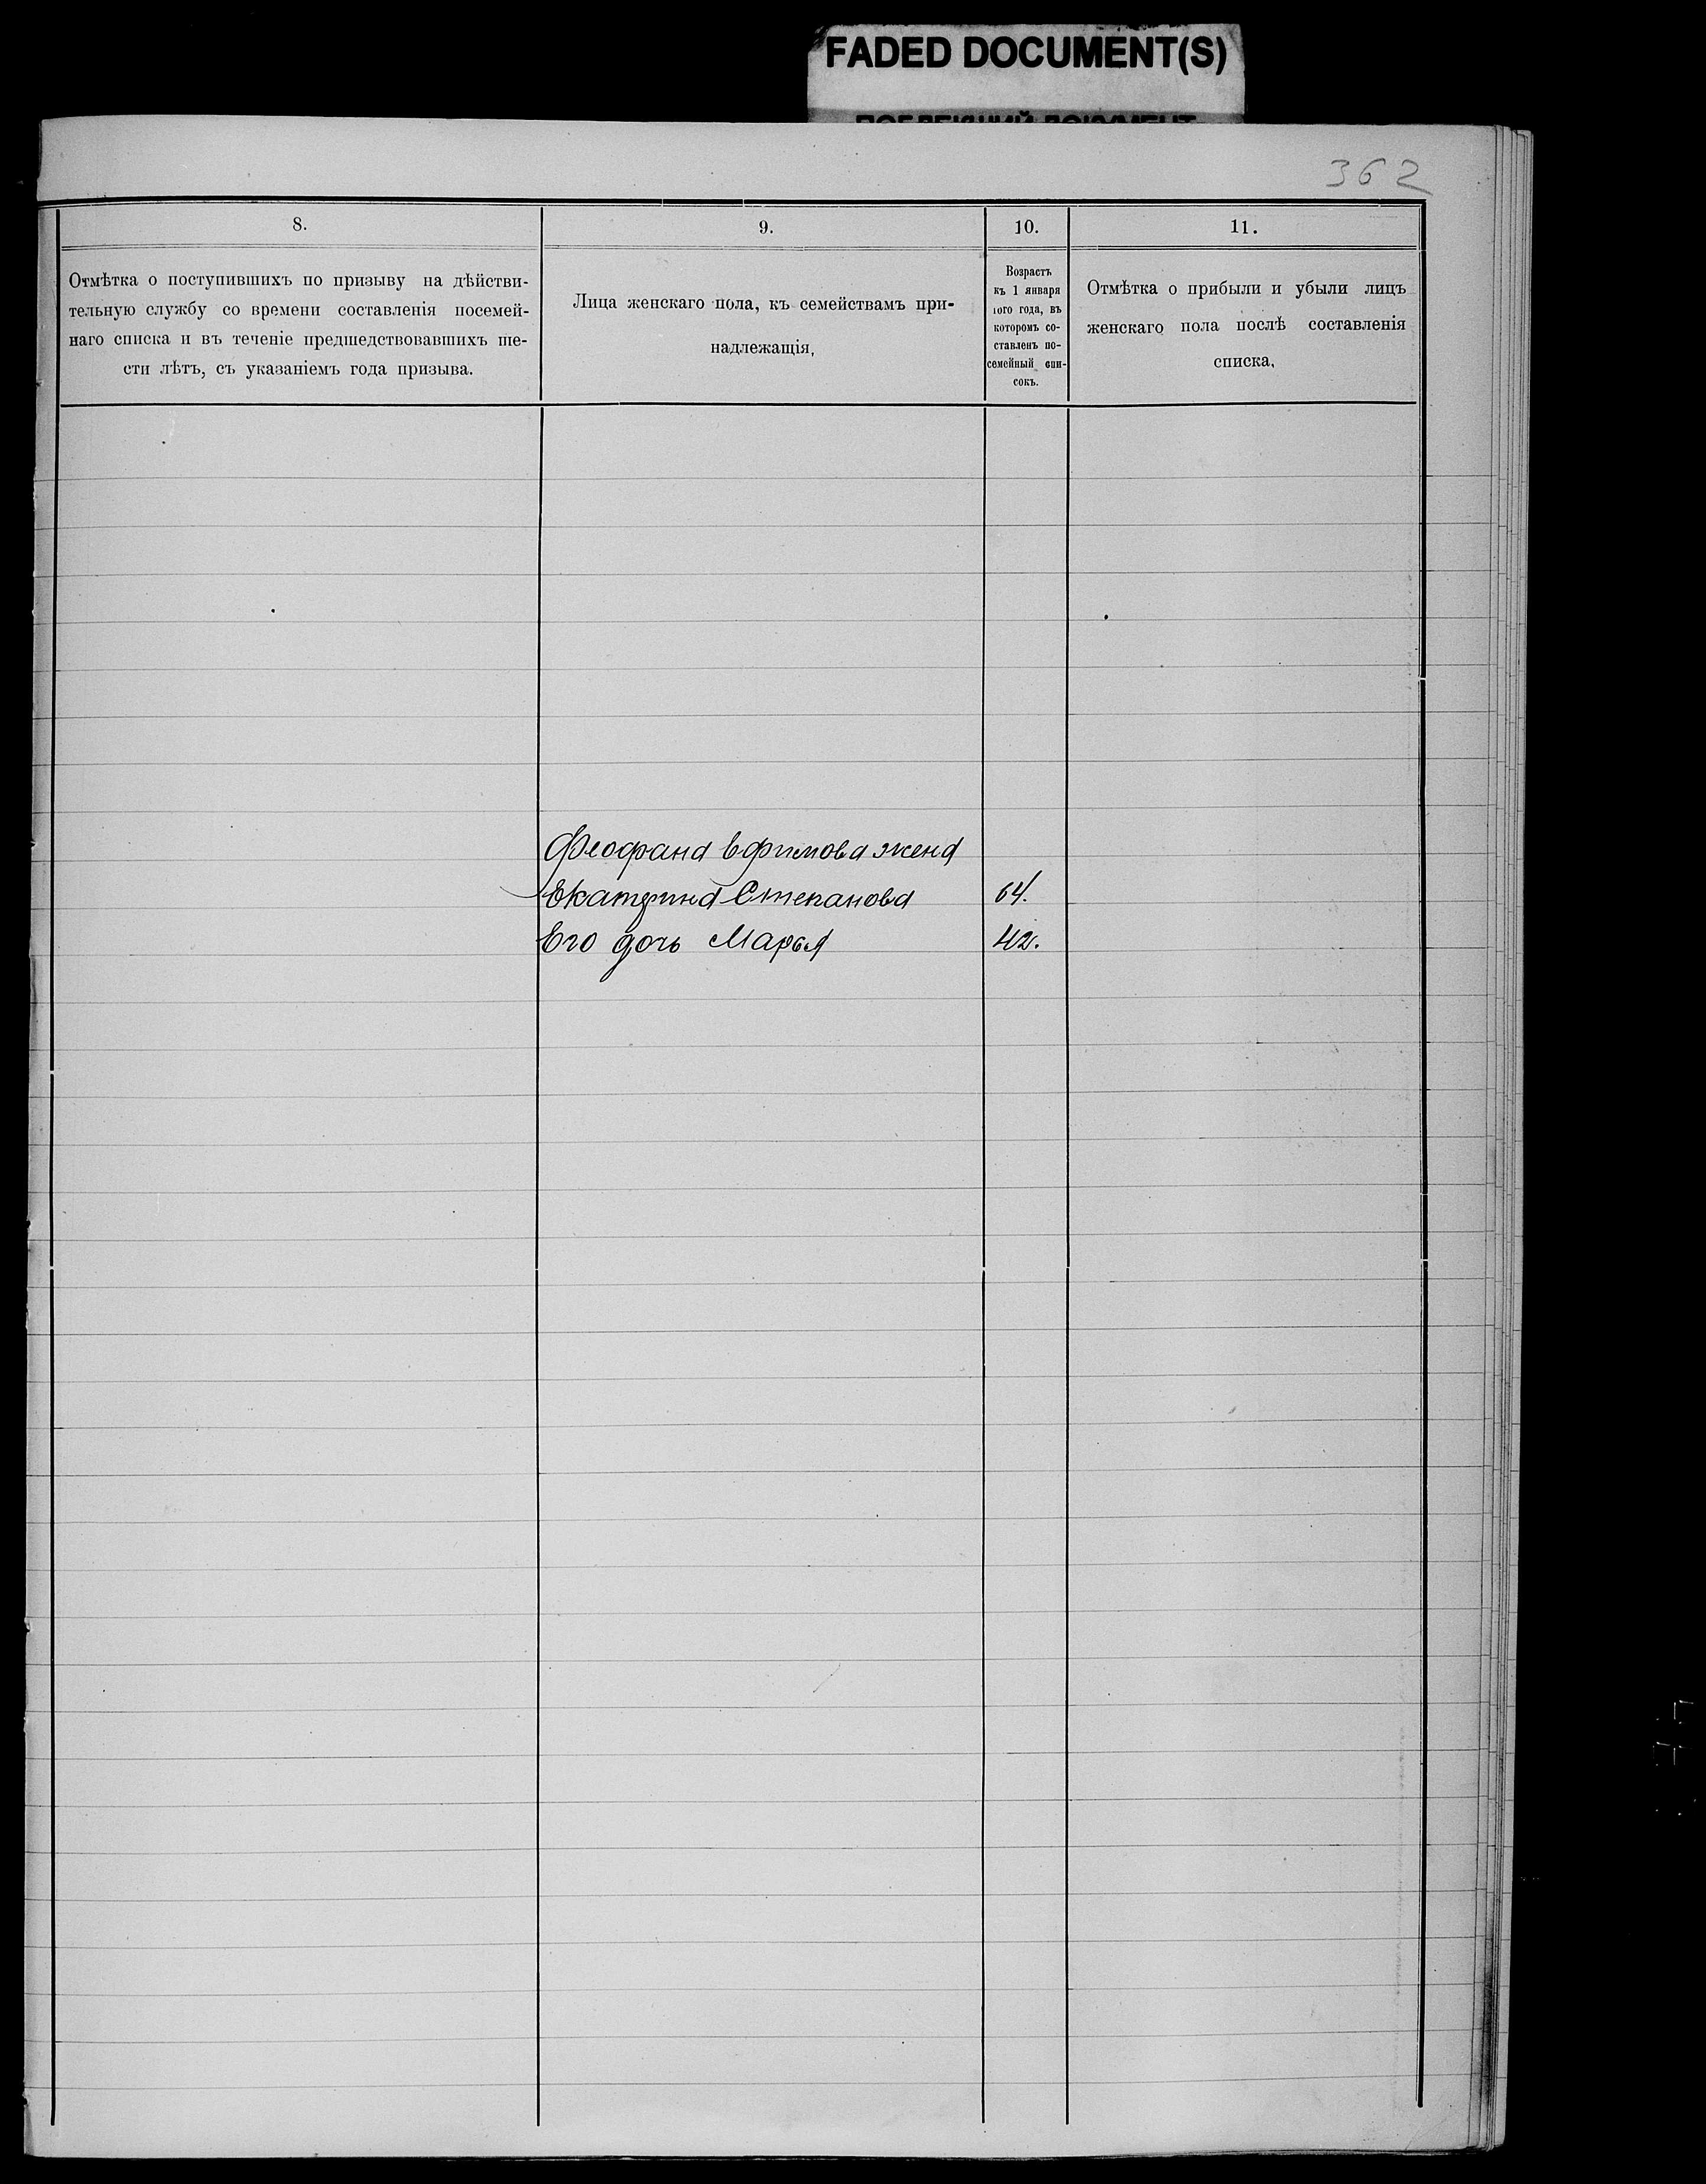 FADED DOCUMENT(S)
ПОБЛЕКШИЙ ДОКУМЕНТ
362
8.
9.
10.
11.
Отмѣтка о поступившихъ по призыву на дѣйстви-
тельную службу со времени составленія посемей-
наго списка и въ теченіе предшедствовавшихъ ше-
сти лѣтъ, съ указаніемъ года призыва.
Лица женскаго пола, къ семействамъ при-
надлежащія,
Возрастъ
къ 1 января
того года, въ
которомъ со-
ставленъ по-
семейный спи-
сокъ.
Отмѣтка о прибыли и убыли лицъ
женскаго пола послѣ составленія
списка.
Феофана Ефимова жена
Екатерина Степанова 64.
Его дочь Марья 42.